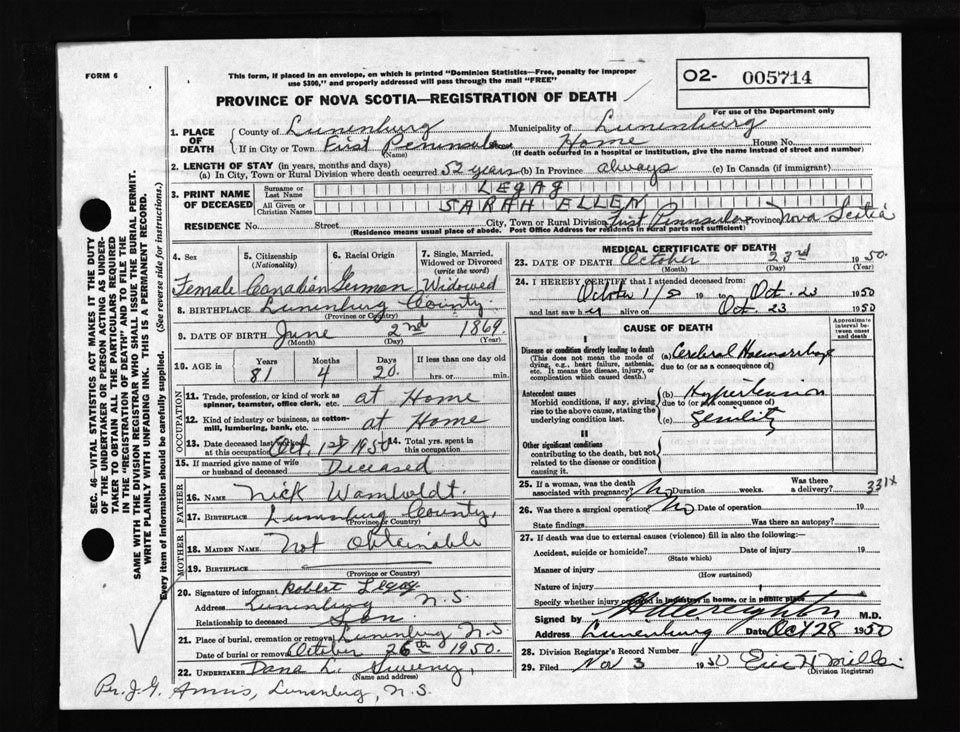 FORM 6
This form, if placed in an envelope, on which is printed "Dominion Statistics—Free, penalty for improper
use $300," and properly addressed will pass through the mail "FREE"
O2- 005714
PROVINCE OF NOVA SCOTIA—REGISTRATION OF DEATH
For use of the Department only
1. PLACE OF DEATH
County of Lunenburg Municipality of Lunenburg
If in City or Town First Peninsula Home House No.
(Name) (If death occurred in a hospital or institution, give the name instead of street and number)
2. LENGTH OF STAY (in years, months and days)
(a) In City, Town or Rural Division where death occurred 52 years (b) In Province always (c) In Canada (if immigrant)
3. PRINT NAME OF DECEASED
Surname or Last Name LEGAG
All Given or Christian Names SARAH ELLEN
RESIDENCE No. Street City, Town or Rural Division First Peninsula Province Nova Scotia
(Residence means usual place of abode. Post Office Address for residents in rural parts not sufficient)
4. Sex
Female
5. Citizenship (Nationality)
Canadian
6. Racial Origin
German
7. Single, Married, Widowed or Divorced (write the word)
Widowed
8. BIRTHPLACE Lunenburg County.
(Province or Country)
9. DATE OF BIRTH June 2nd 1869.
(Month) (Day) (Year)
10. AGE in
Years 81
Months 4
Days 20.
If less than one day old
hrs. or min.
OCCUPATION
11. Trade, profession, or kind of work as spinner, teamster, office clerk, etc. at Home
12. Kind of industry or business, as cotton-mill, lumbering, bank, etc. at Home
13. Date deceased last worked at this occupation Oct. 1950
14. Total yrs. spent in this occupation
15. If married give name of wife or husband of deceased Deceased
FATHER
16. NAME Nick Wamboldt.
17. BIRTHPLACE Lunenburg County,
(Province or Country)
MOTHER
18. MAIDEN NAME Not Obtainable
19. BIRTHPLACE
(Province or Country)
20. Signature of informant Robert Legag
Address Lunenburg N.S.
Relationship to deceased Son
21. Place of burial, cremation or removal Lunenburg N.S
Date of burial or removal October 26th 1950.
22. UNDERTAKER Dana L. Sweeny,
(Name and address)
Per. J. G. Lunenburg, N.S.
MEDICAL CERTIFICATE OF DEATH
23. DATE OF DEATH October 23rd 1950
(Month) (Day) (Year)
24. I HEREBY CERTIFY that I attended deceased from:
October 1950 to Oct. 23 1950
and last saw her alive on Oct. 23 1950
CAUSE OF DEATH
Approximate interval between onset and death
I
Disease or condition directly leading to death
(This does not mean the mode of dying, e.g., heart failure, asthenia, etc. It means the disease, injury, or complication which caused death.)
(a) Cerebral Haemorrhage
due to (or as a consequence of)
Antecedent causes
Morbid conditions, if any, giving rise to the above cause, stating the underlying condition last.
(b) Hypertension
due to (or as consequence of)
(c) Senility
II
Other significant conditions
contributing to the death, but not related to the disease or condition causing it.
25. If a woman, was the death associated with pregnancy? No Duration weeks. Was there a delivery?
331x
26. Was there a surgical operation? No Date of operation 19
State findings Was there an autopsy?
27. If death was due to external causes (violence) fill in also the following:—
Accident, suicide or homicide? Date of injury 19
(State which)
Manner of injury
(How sustained)
Nature of injury
Specify whether injury occurred in industry, in home, or in public place
Signed by Creighton M.D.
Address Lunenburg Date Oct 28 1950
28. Division Registrar's Record Number
29. Filed Nov 3 1950 Eric H Miller
(Division Registrar)
SEC. 46—VITAL STATISTICS ACT MAKES IT THE DUTY
OF THE UNDERTAKER OR PERSON ACTING AS UNDER-
TAKER TO OBTAIN ALL THE PARTICULARS REQUIRED
IN THE "REGISTRATION OF DEATH" AND TO FILE THE
SAME WITH THE DIVISION REGISTRAR WHO SHALL ISSUE THE BURIAL PERMIT.
WRITE PLAINLY WITH UNFADING INK. THIS IS A PERMANENT RECORD.
Every item of information should be carefully supplied. (See reverse side for instructions.)